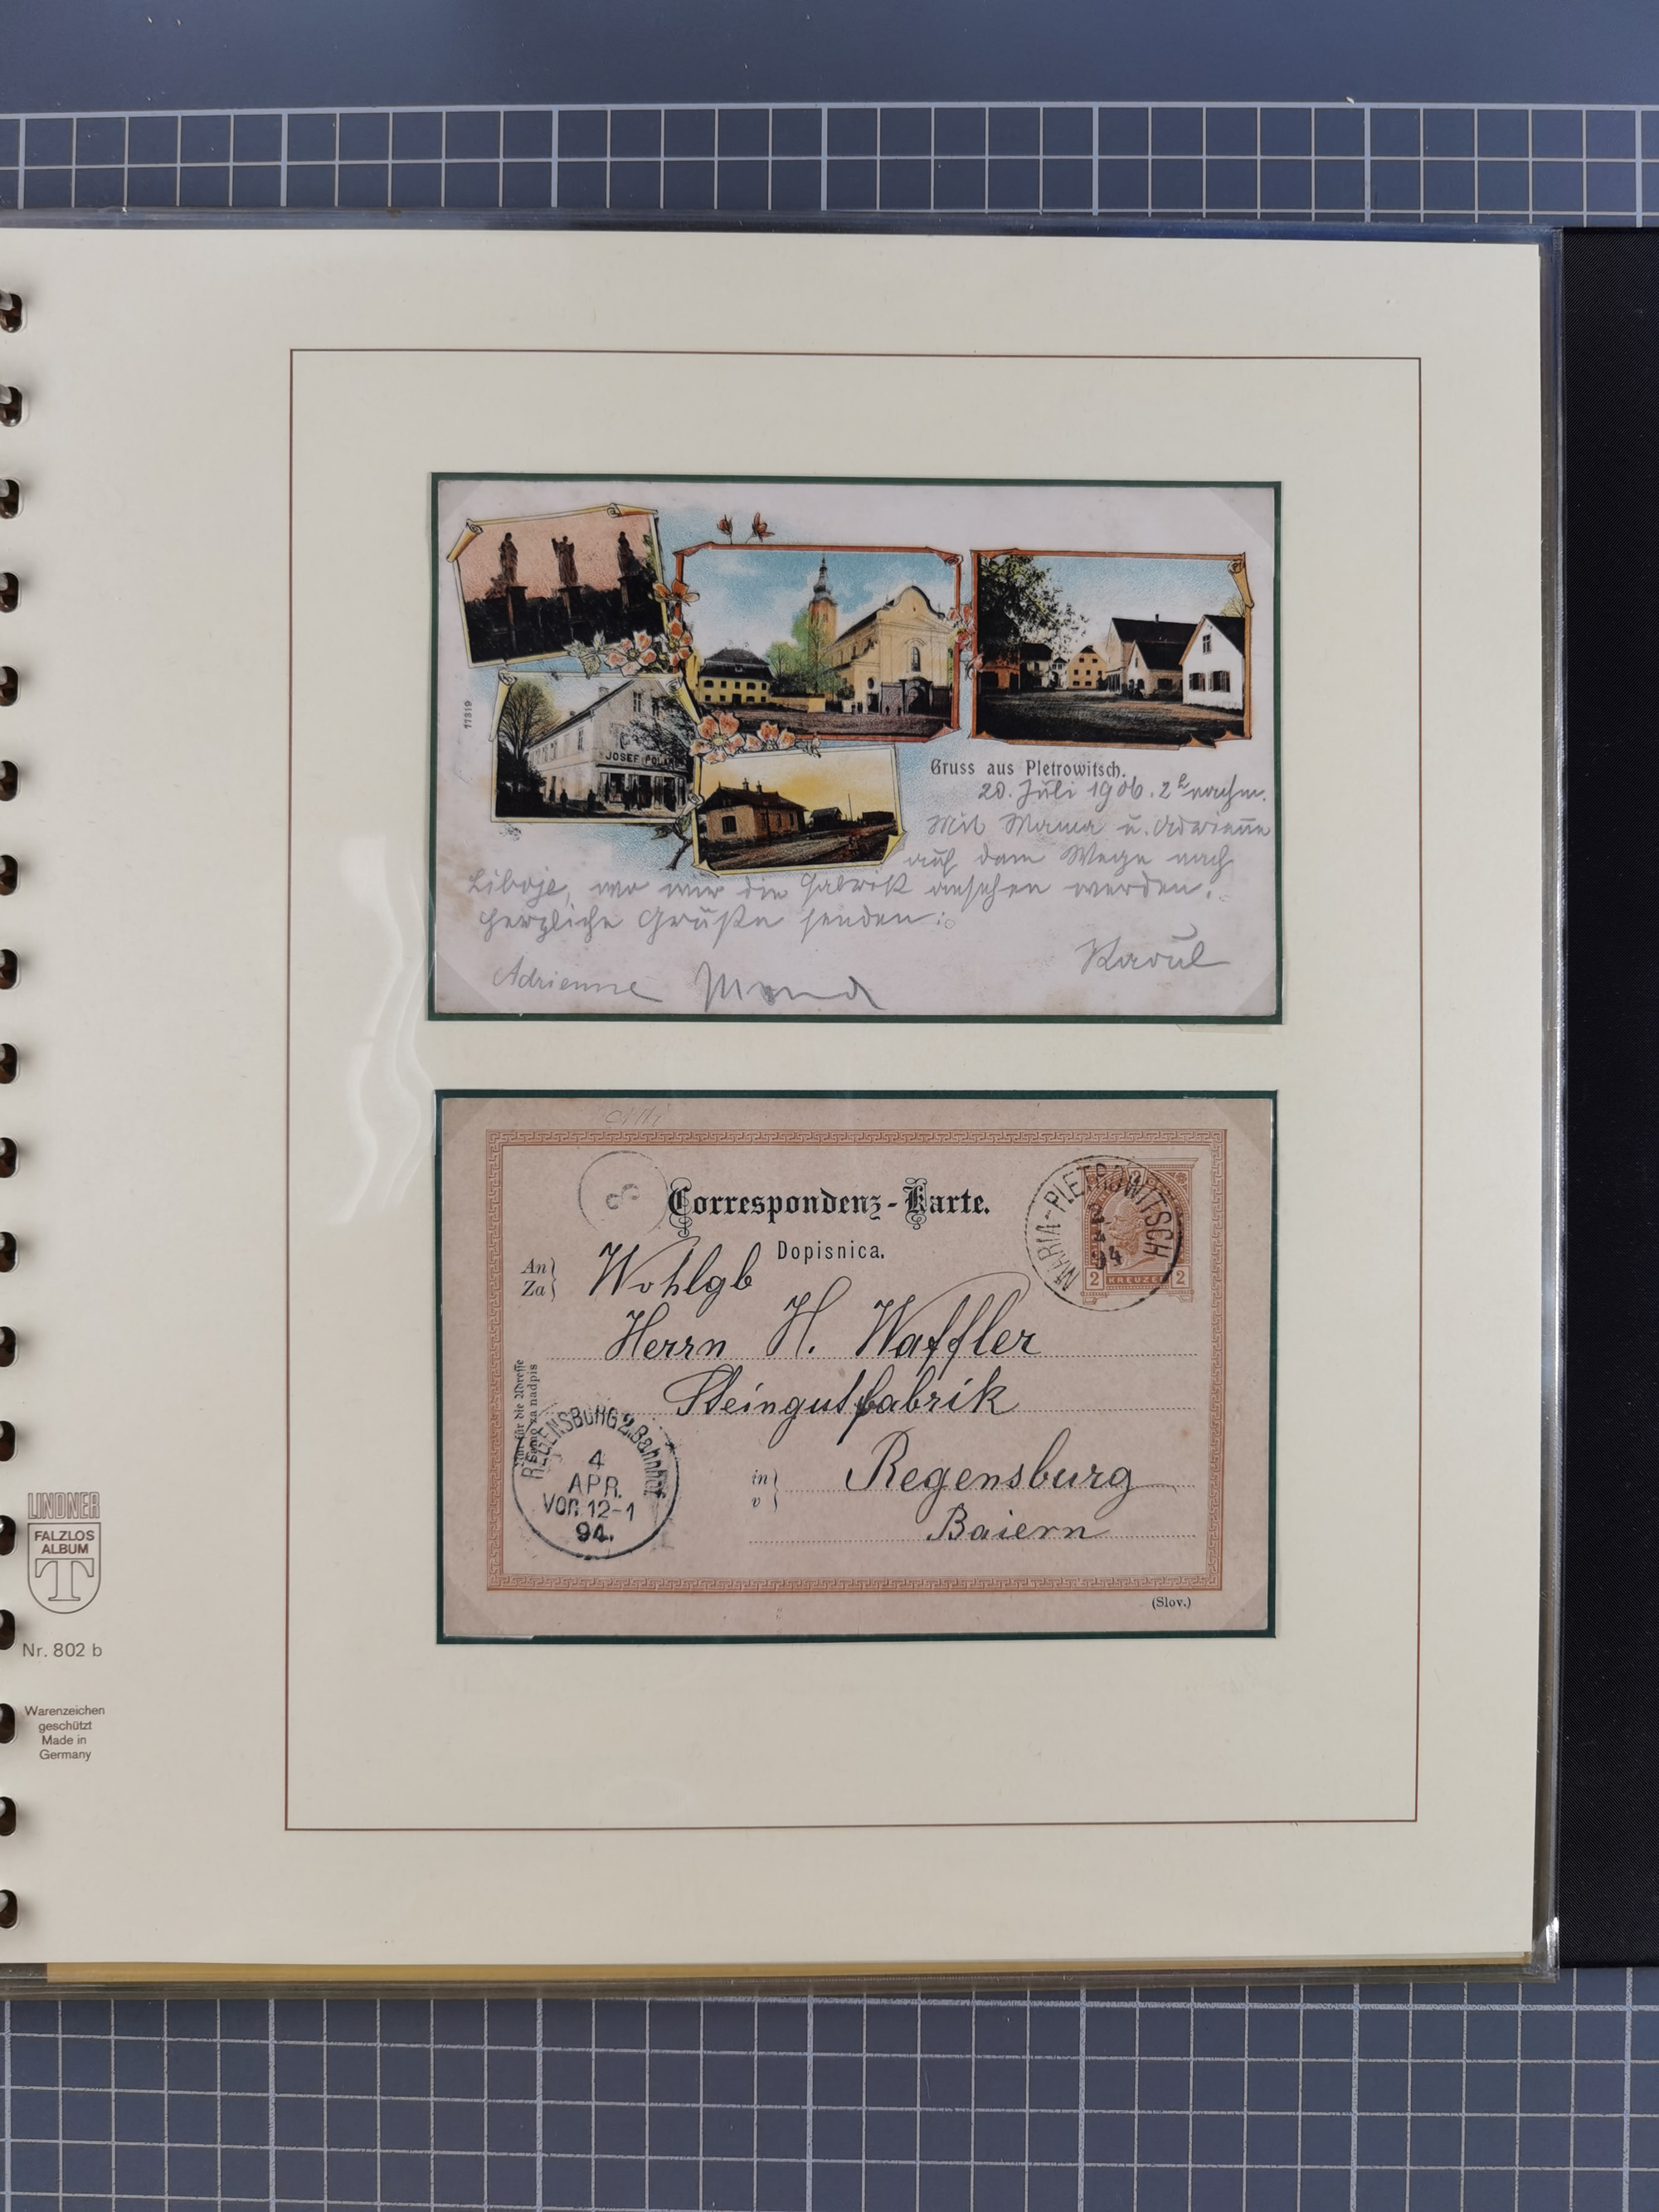 77319
JOSEF POLA
Gruss aus Pletrowitsch.
20. Juli 1906. 2h nachm.
Mit Mama u. Adrienne
auf dem Wege nach
Liboje, wo wir die Fabrik ansehen werden.
Herzliche Grüße senden:
Raoul
Adrienne
Correspondenz-Karte.
Dopisnica.
MARIA-PLETROWITSCH
94
2 KREUZER 2
An
Za
Wohlgb
Herrn H. Waffler
Steingutfabrik
Nur für die Adresse
Samo za nadpis
REGENSBURG 2. Bahnhof
4
APR.
Vor. 12-1
94.
in
v
Regensburg
Baiern
(Slov.)
LINDNER
FALZLOS
ALBUM
T
Nr. 802 b
Warenzeichen
geschützt
Made in
Germany